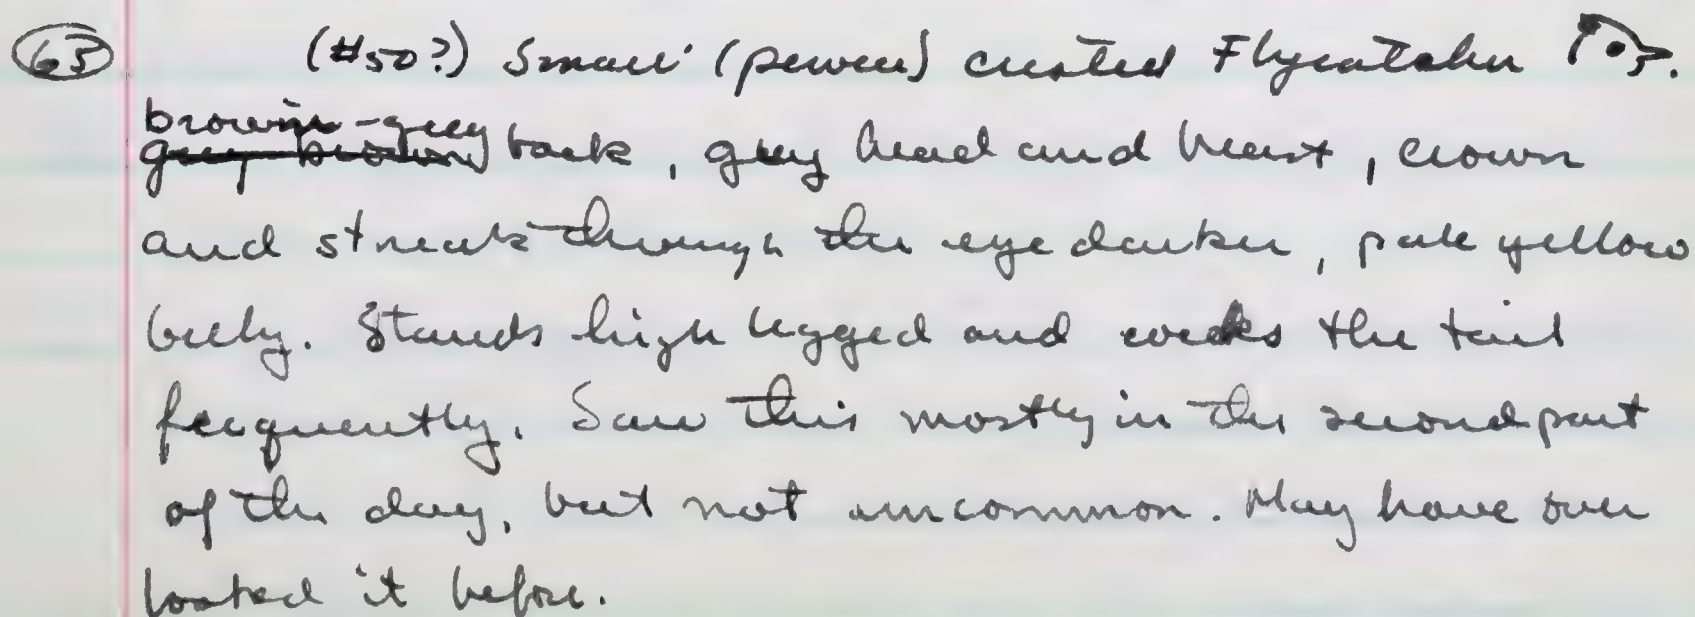 63 (#50?) Small (pewee) crested Flycatcher.
brown-grey
grey brown back, grey head and breast, crown
and streak through the eye darker, pale yellow
belly. Stands high legged and cocks the tail
frequently. Saw this mostly in the second part
of the day, but not uncommon. May have over
looked it before.